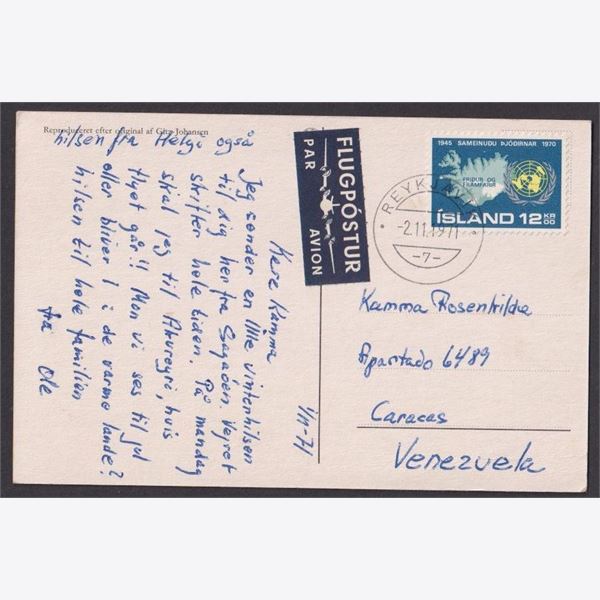 Reproduceret efter original af Gitz-Johansen
hilsen fra Helgi også
1/11-71
Kære Kamma
Jeg sender en lille vinterhilsen
til dig her fra Sagaøen. Vejret
skifter hele tiden. På mandag
skal jeg til Akureyri, hvis
flyet går!! Mon vi ses til jul
eller bliver I i de varme lande?
hilsen til hele familien
fra Ole
FLUGPÓSTUR
PAR AVION
1945 SAMEINUDU ÞJÓÐIRNAR 1970
FRIÐUR OG
FRAMFARIR
ÍSLAND 12 KR
00
REYKJAVÍK
-2.11.1971
-7-
Kamma Rosenkilde
Apartado 6489
Caracas
Venezuela